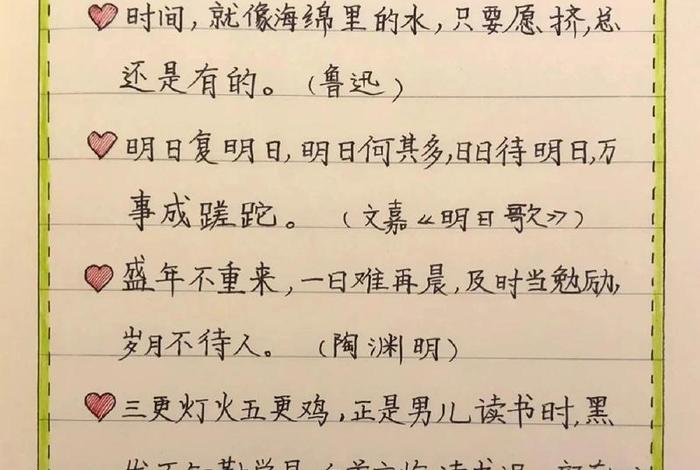 时间，就像海绵里的水，只要愿挤，总
还是有的。（鲁迅）
明日复明日，明日何其多，日日待明日，万
事成蹉跎。（文嘉《明日歌》）
盛年不重来，一日难再晨，及时当勉励，
岁月不待人。（陶渊明）
三更灯火五更鸡，正是男儿读书时，黑